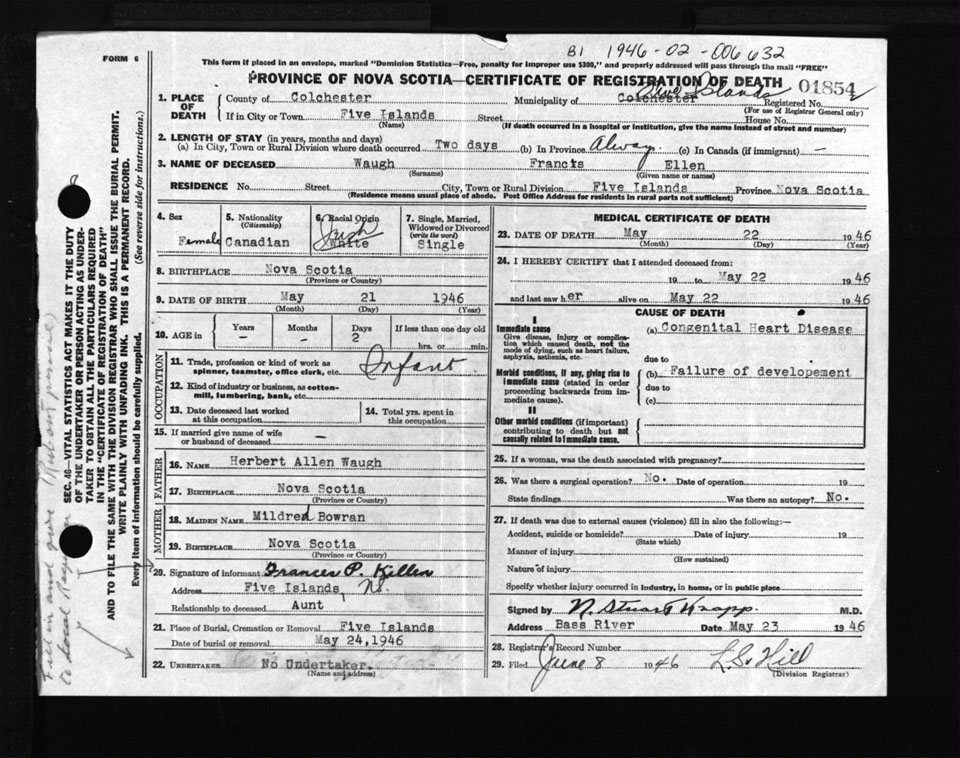 B1 1946-02-006632
FORM 6
This form if placed in an envelope, marked "Dominion Statistics—Free, penalty for improper use $300," and properly addressed will pass through the mail "FREE"
PROVINCE OF NOVA SCOTIA—CERTIFICATE OF REGISTRATION OF DEATH
01854
Five Islands
1. PLACE OF DEATH
County of Colchester Municipality of Colchester Registered No.
(For use of Registrar General only)
If in City or Town Five Islands Street House No.
(Name) (If death occurred in a hospital or institution, give the name instead of street and number)
2. LENGTH OF STAY (in years, months and days)
(a) In City, Town or Rural Division where death occurred Two days (b) In Province Always (c) In Canada (if immigrant) —
3. NAME OF DECEASED Waugh Francis Ellen
(Surname) (Given name or names)
RESIDENCE No. Street City, Town or Rural Division Five Islands Province Nova Scotia
(Residence means usual place of abode. Post Office Address for residents in rural parts not sufficient)
4. Sex
Female
5. Nationality
(Citizenship)
Canadian
6. Racial Origin
Irish
White
7. Single, Married, Widowed or Divorced
(write the word)
Single
8. BIRTHPLACE Nova Scotia
(Province or Country)
9. DATE OF BIRTH May 21 1946
(Month) (Day) (Year)
10. AGE in Years Months Days If less than one day old
— — 2 hrs. or min.
OCCUPATION
11. Trade, profession or kind of work as spinner, teamster, office clerk, etc. Infant
12. Kind of industry or business, as cotton-mill, lumbering, bank, etc.
13. Date deceased last worked at this occupation
14. Total yrs. spent in this occupation
15. If married give name of wife or husband of deceased —
FATHER
16. NAME Herbert Allen Waugh
17. BIRTHPLACE Nova Scotia
(Province or Country)
MOTHER
18. MAIDEN NAME Mildred Bowran
19. BIRTHPLACE Nova Scotia
(Province or Country)
20. Signature of informant Frances P. Killen
Address Five Islands, NS.
Relationship to deceased Aunt
21. Place of Burial, Cremation or Removal Five Islands
Date of burial or removal May 24, 1946
22. UNDERTAKER No Undertaker.
(Name and address)
MEDICAL CERTIFICATE OF DEATH
23. DATE OF DEATH May 22 1946
(Month) (Day) (Year)
24. I HEREBY CERTIFY that I attended deceased from:
19 to May 22 1946
and last saw her alive on May 22 1946
CAUSE OF DEATH
I
Immediate cause
Give disease, injury or complication which caused death, not the mode of dying, such as heart failure, asphyxia, asthenia, etc.
(a) Congenital Heart Disease
due to
Morbid conditions, if any, giving rise to immediate cause (stated in order proceeding backwards from immediate cause).
(b) Failure of developement
due to
(c)
II
Other morbid conditions (if important) contributing to death but not causally related to immediate cause.
25. If a woman, was the death associated with pregnancy?
26. Was there a surgical operation? No. Date of operation 19
State findings Was there an autopsy? No.
27. If death was due to external causes (violence) fill in also the following:—
Accident, suicide or homicide? Date of injury 19
(State which)
Manner of injury
(How sustained)
Nature of injury
Specify whether injury occurred in industry, in home, or in public place
Signed by N. Stuart Knapp. M.D.
Address Bass River Date May 23 1946
28. Registrar's Record Number
29. Filed June 8 1946 L.S. Hill
(Division Registrar)
SEC. 46—VITAL STATISTICS ACT MAKES IT THE DUTY
OF THE UNDERTAKER OR PERSON ACTING AS UNDER-
TAKER TO OBTAIN ALL THE PARTICULARS REQUIRED
IN THE "CERTIFICATE OF REGISTRATION OF DEATH"
AND TO FILE THE SAME WITH THE DIVISION REGISTRAR WHO SHALL ISSUE THE BURIAL PERMIT.
WRITE PLAINLY WITH UNFADING INK. THIS IS A PERMANENT RECORD.
Every item of information should be carefully supplied. (See reverse side for instructions.)
Fill in and
to Local